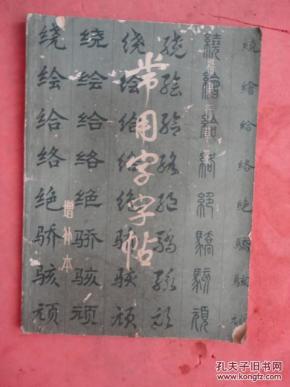 常用字字帖
增补本
绕绘给络绝骄骇顽
绕绘给络绝骄骇顽
绕绘给络绝骄骇顽
繞繪給絡絕驕駭頑
繞繪給絡絕驕駭
孔夫子旧书网